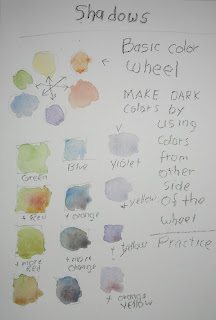 Shadows
Basic color
wheel
MAKE DARK
colors by
using
colors
from
other
side
of the
wheel
Practice
Green
Blue
Violet
+ Red
+ orange
+ yellow
+ more
Red
+ more
orange
+ yellow
+ orange
yellow